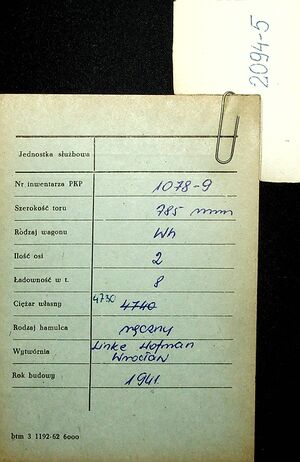 2094-5
Jednostka służbowa
Nr inwentarza PKP 1078-9
Szerokość toru 785 mm
Rodzaj wagonu Wh
Ilość osi 2
Ładowność w t. 8
Ciężar własny 4730 4740
Rodzaj hamulca ręczny
Wytwórnia Linke Hofman
Wrocław
Rok budowy 1941
htm 3 1192-62 6000